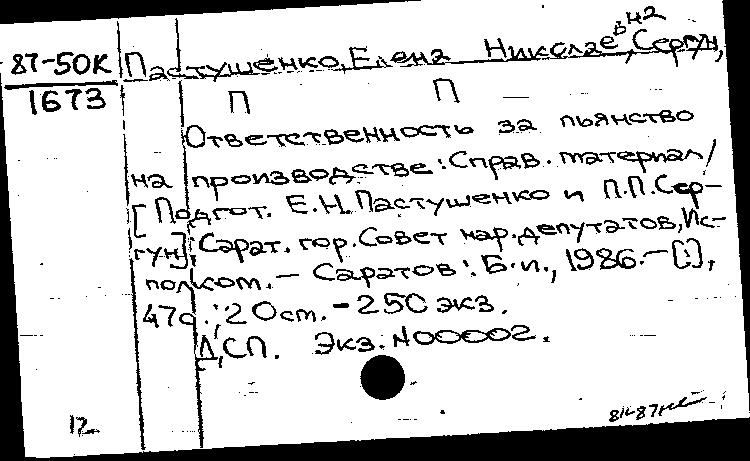 87-50К Пастушенко, Елена Николаев42, Сергун,
1673 П П
Ответственность за пьянство
на производстве: Справ. материал /
[Подгот. Е.Н. Пастушенко и П.П. Сер-
гун]; Сарат. гор. Совет нар. депутатов, Ис-
полком. – Саратов: Б.и., 1986. – [1],
47с.; 20см. – 250 экз.
ДСП. Экз. N00002.
12